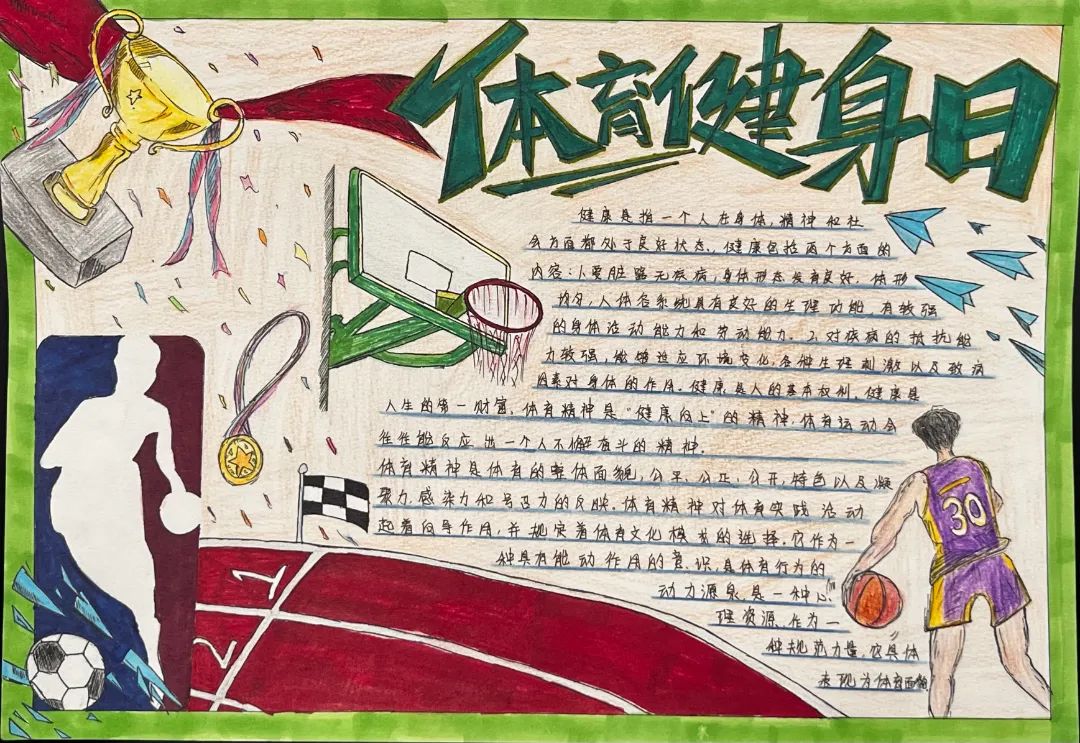 体育健身日
健康是指一个人在身体,精神和社
会方面都处于良好状态.健康包括两个方面的
内容:1.要脏器无疾病,身体形态发育良好,体形
均匀,人体各系统具有良好的生理功能,有较强
的身体活动能力和劳动能力.2.对疾病的抵抗能
力较强,能够适应环境变化,各种生理刺激以及致病
因素对身体的作用.健康是人的基本权利.健康是
人生的第一财富.体育精神是"健康向上"的精神.体育运动会
往往能反应出一个人不懈奋斗的精神.
体育精神是体育的整体面貌,公平,公正,公开,特色以及凝
聚力,感染力和号召力的反映.体育精神对体育实践活动
起着向导作用,并规定着体育文化模式的选择.它作为一
种具有能动作用的意识,是体育行为的
动力源泉,是一种心
理资源.作为一
种规范力量.它具体
表现为体育面貌
30
1
2